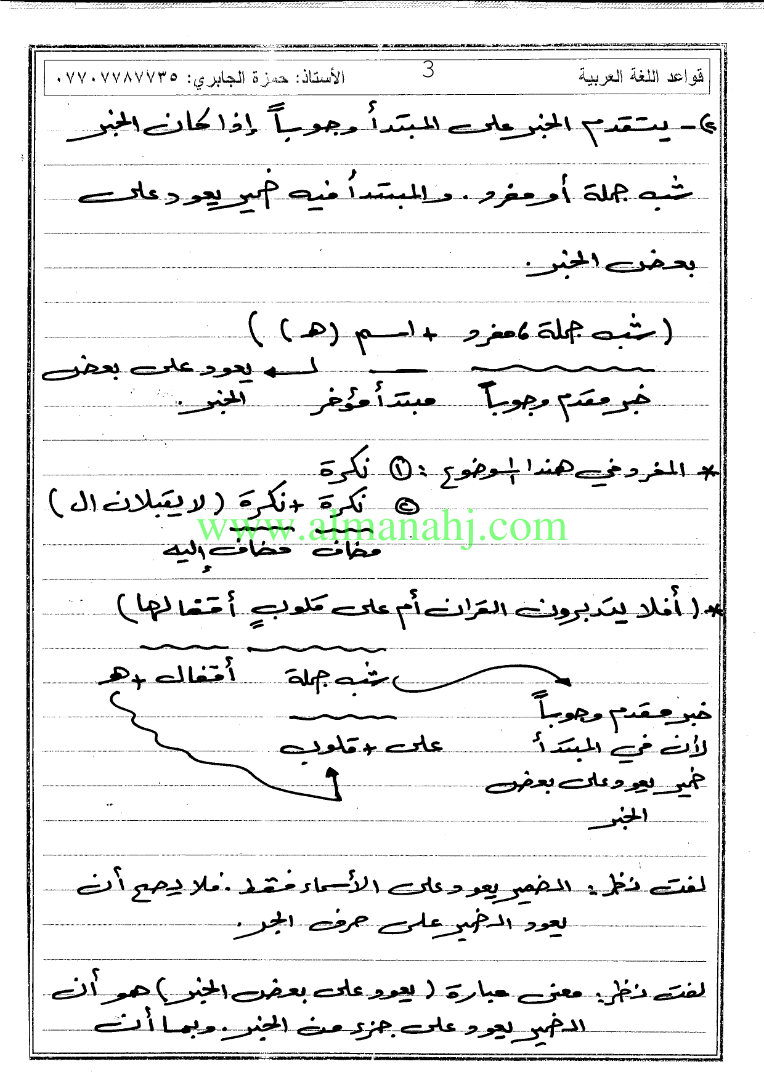 قواعد اللغة العربية 3 الأستاذ: حمزة الجابري: ٠٧٧٠٧٧٨٧٧٣٥
٢)- يتقدم الخبر على المبتدأ وجوباً إذا كان الخبر
شبه جملة أو مفرد. والمبتدأ فيه ضمير يعود على
بعض الخبر.
(شبه جملة، مفرد + اسم (هـ))
يعود على بعض
خبر مقدم وجوباً مبتدأ مؤخر الخبر.
* المفرد في هذا الموضوع: ① نكرة
② نكرة + نكرة (لا يقبلان ال)
www.almanahj.com
مضاف مضاف إليه
* (أفلا يتدبرون القران أم على قلوبٍ أقفالها)
شبه جملة أقفال + هـ
خبر مقدم وجوباً
لأن في المبتدأ على + قلوب
ضمير يعود على بعض
الخبر
لفت نظر: الضمير يعود على الأسماء فقط. فلا يصح أن
يعود الضمير على حرف الجر.
لفت نظر: معنى عبارة (يعود على بعض الخبر) هو أن
الضمير يعود على جزء من الخبر. وبما أن